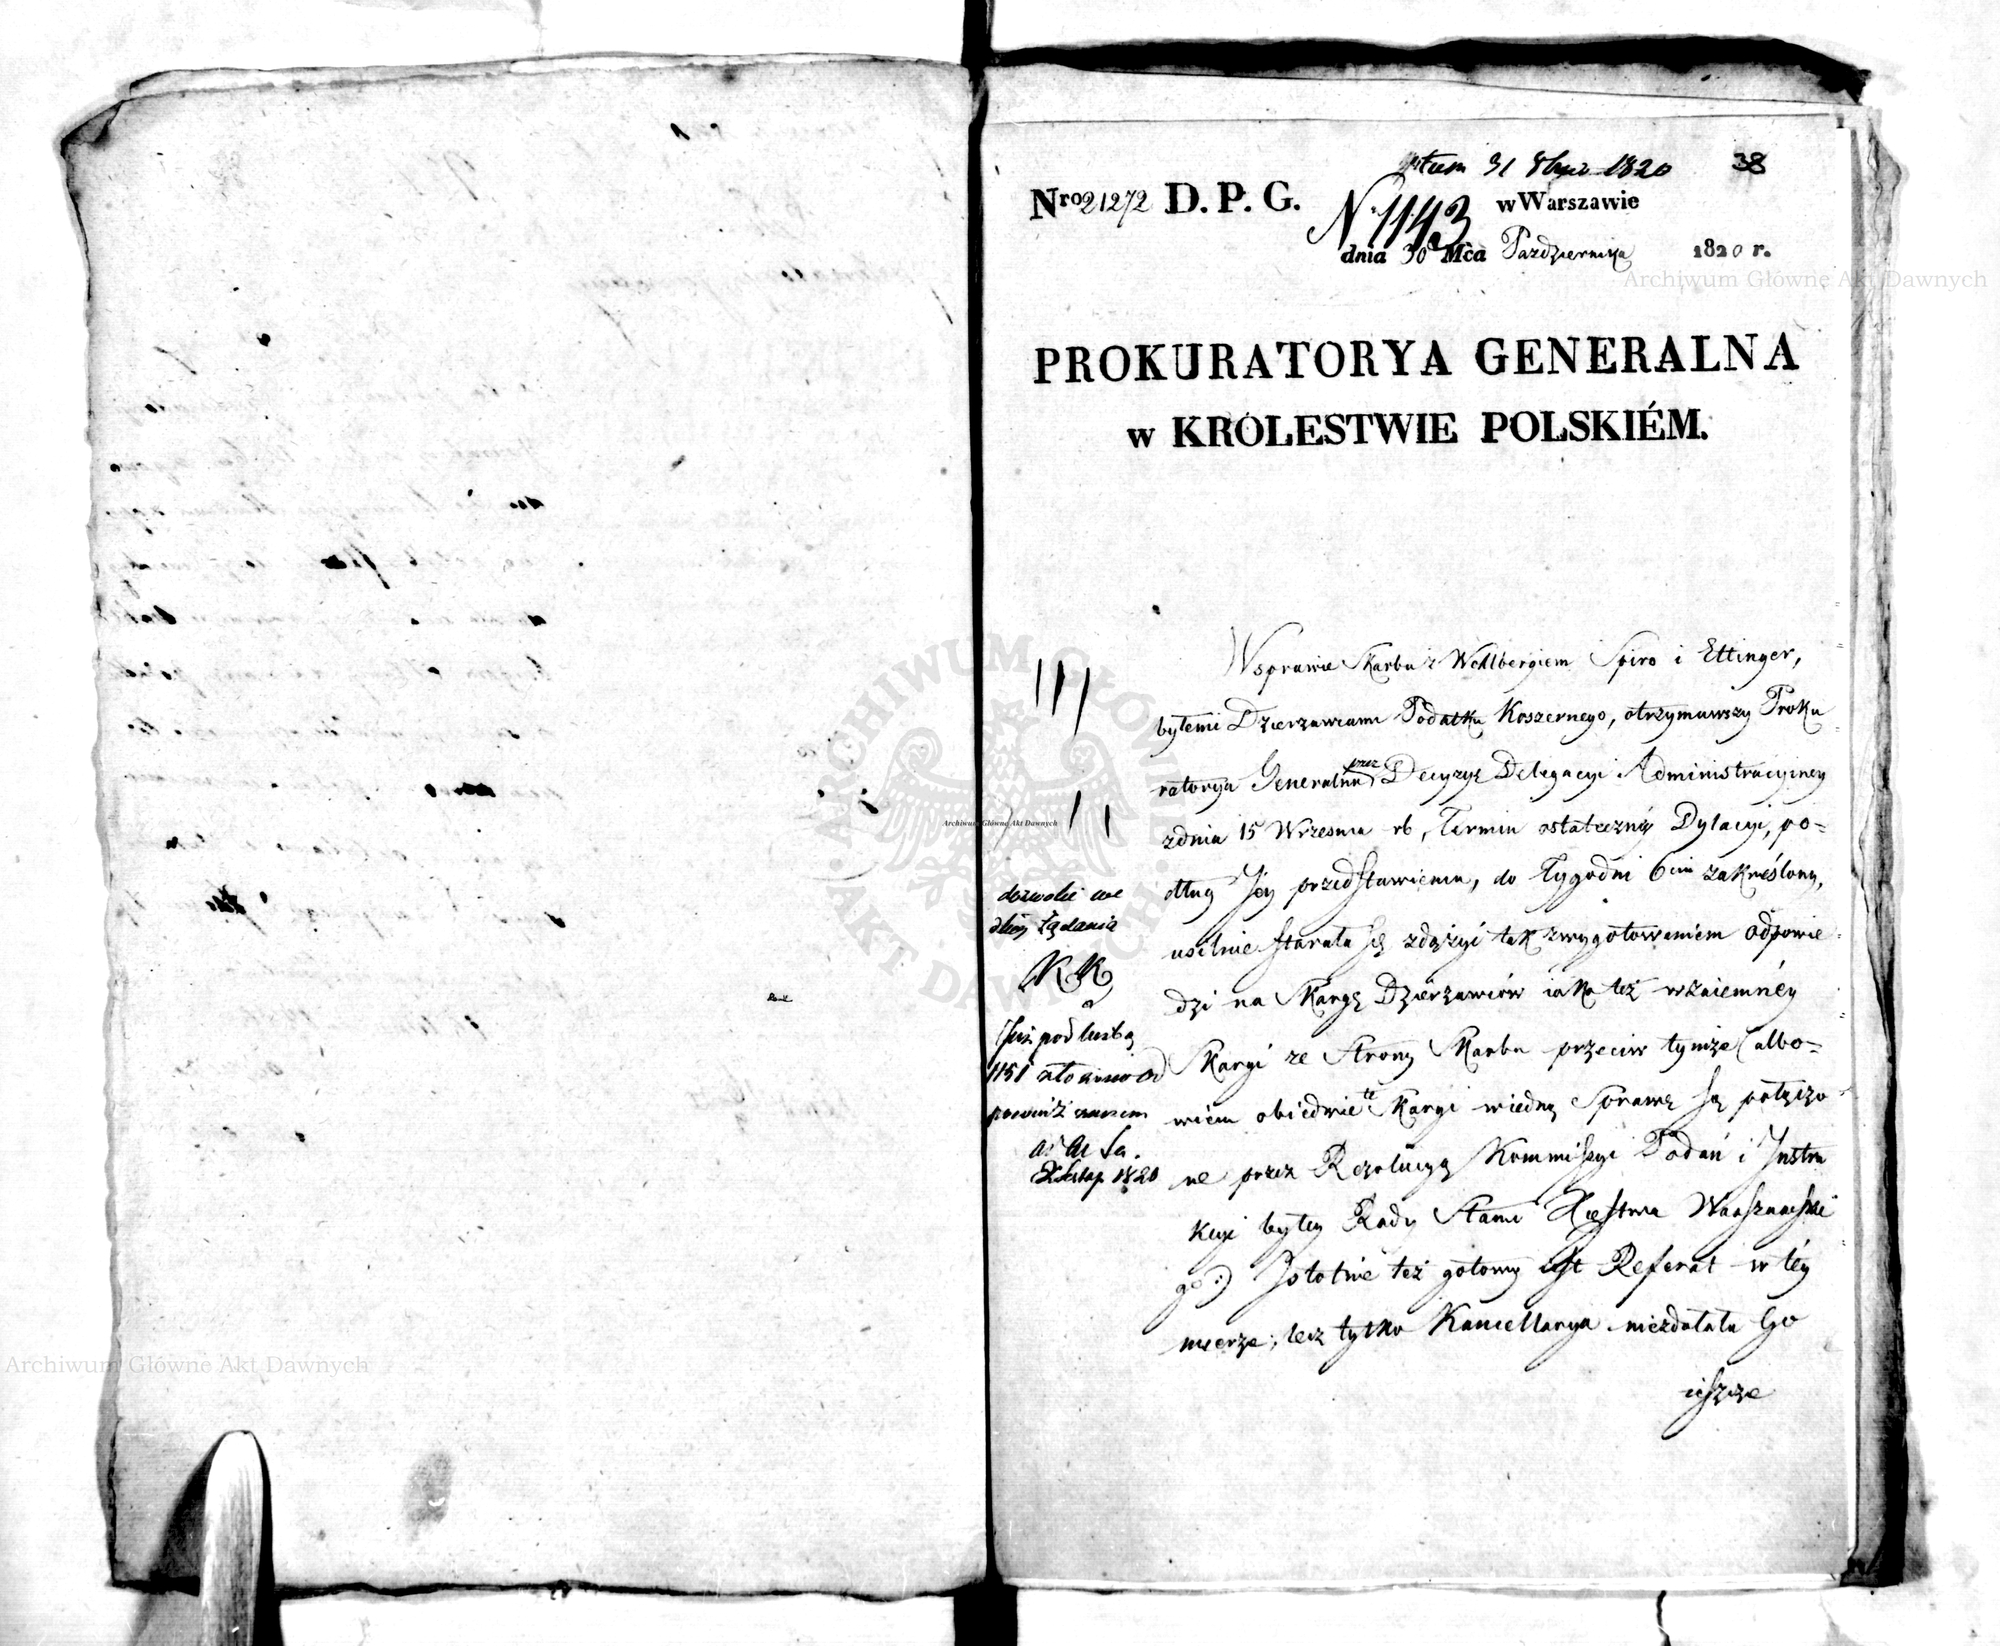 31 8bris 1820
38
Nro 21272 D. P. G.
N. 1143
w Warszawie
dnia 30 Mca Października 1820 r.
PROKURATORYA GENERALNA
w KRÓLESTWIE POLSKIÉM.
W sprawie Skarbu z Wohlbergiem Spiro i Ettinger,
byłemi Dzierżawcami Podatku Koszernego, otrzymawszy Proku
ratorya Generalna przez Decyzyę Delegacyi Administracyiney
z dnia 15 Września rb, Termin ostateczny Dylacyi, po=
dług Jey przedstawienia, do Tygodni 6ciu zakreślony,
usilnie starała się zdążyć tak z wygotowaniem odpowie
dzi na Skargę Dzierżawców iako też wzaiemnéy
Skargi ze Strony Skarbu przeciw tymże (albo=
wiem obiedwie te Skargi w iedną Sprawę są połączo
ne przez Rezolucyą Kommissyi Podań i Instru
kcyi byłey Rady Stanu Xięstwa Warszawskie
go:) Istotnie też gotowy iest Referat w téy
mierze; lecz tylko Kancellarya niezdołała Go
ieszcze
dozwolić we
dług żądania
Już pod liczbą
1151 złożono od
powiedź
ad acta.
1820
Archiwum Główne Akt Dawnych
Archiwum Główne Akt Dawnych
Archiwum Główne Akt Dawnych
ARCHIWUM GŁÓWNE AKT DAWNYCH